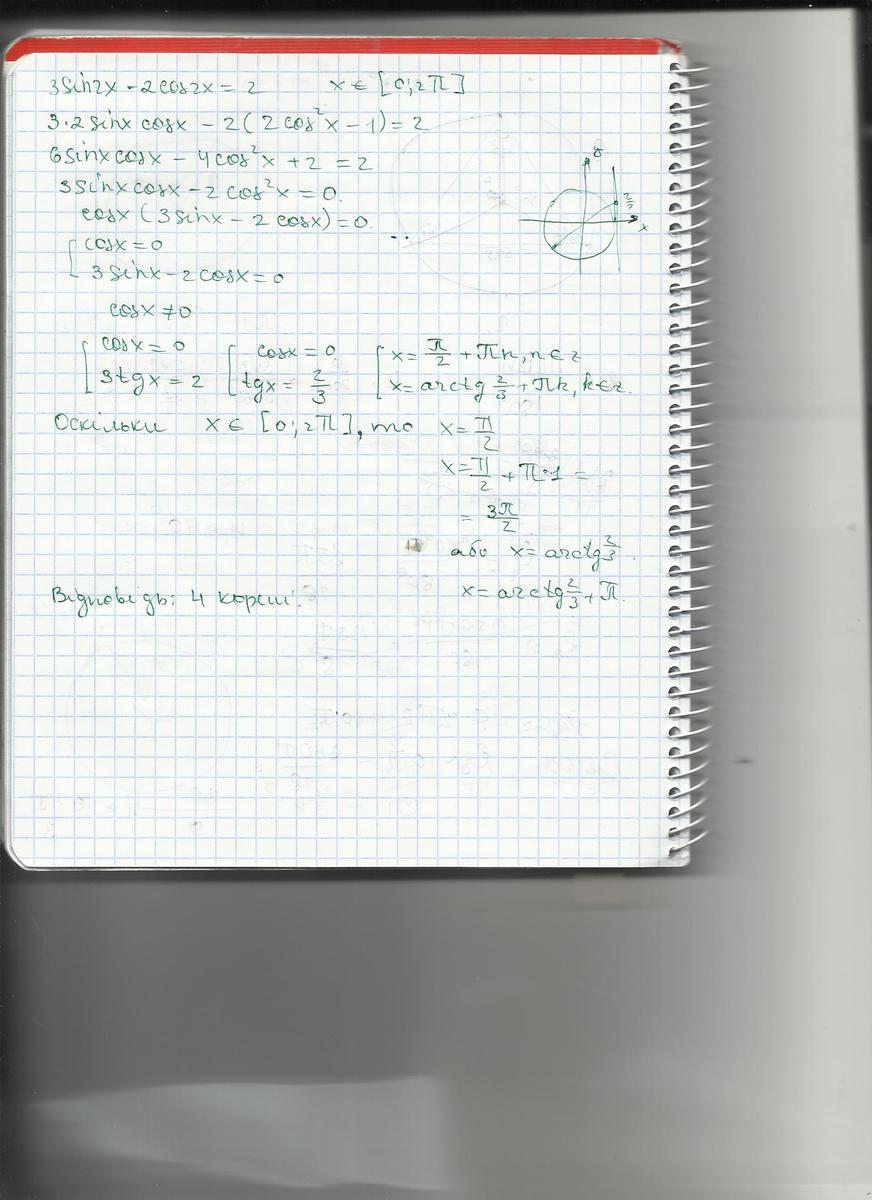 3sin2x - 2cos2x = 2 x ∈ [0; 2π]
3·2sinx cosx - 2(2cos²x - 1) = 2
6sinx cosx - 4cos²x + 2 = 2
3sinx cosx - 2cos²x = 0.
cosx (3sinx - 2cosx) = 0.
[ cosx = 0
3sinx - 2cosx = 0
cosx ≠ 0
[ cosx = 0 [ cosx = 0. [ x = π/2 + πn, n ∈ z
3tgx = 2 tgx = 2/3 x = arctg 2/3 + πk, k ∈ z.
Оскільки x ∈ [0; 2π], то x = π/2
x = π/2 + π·1 =
= 3π/2
або x = arctg 2/3.
x = arctg 2/3 + π.
Відповідь: 4 корені.
x